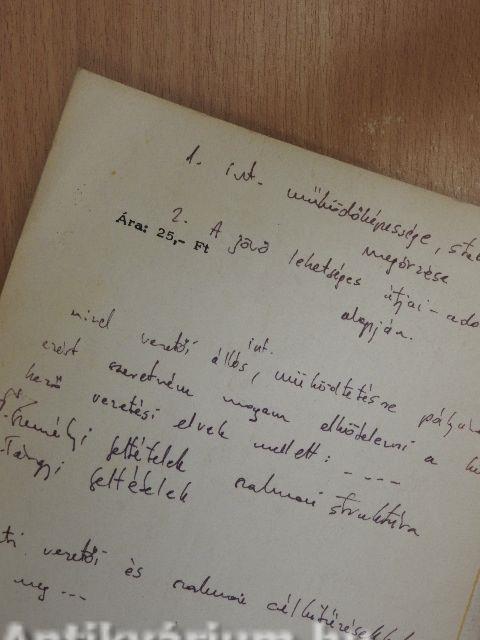 1. int. működőképessége, stab
megőrzése
2. A jövő lehetséges útjai - ado
alapján.
Ára: 25,- Ft
mivel vezetői állás, int. működtetésre pályáz
ezért szeretném magam elkötelezni a kö
vezetési elvek mellett: - - -
1. Személyi feltételek szakmai struktúra
Tárgyi feltételek
vezetői és szakmai célkitűzések
meg ---
Antikvárium.hu